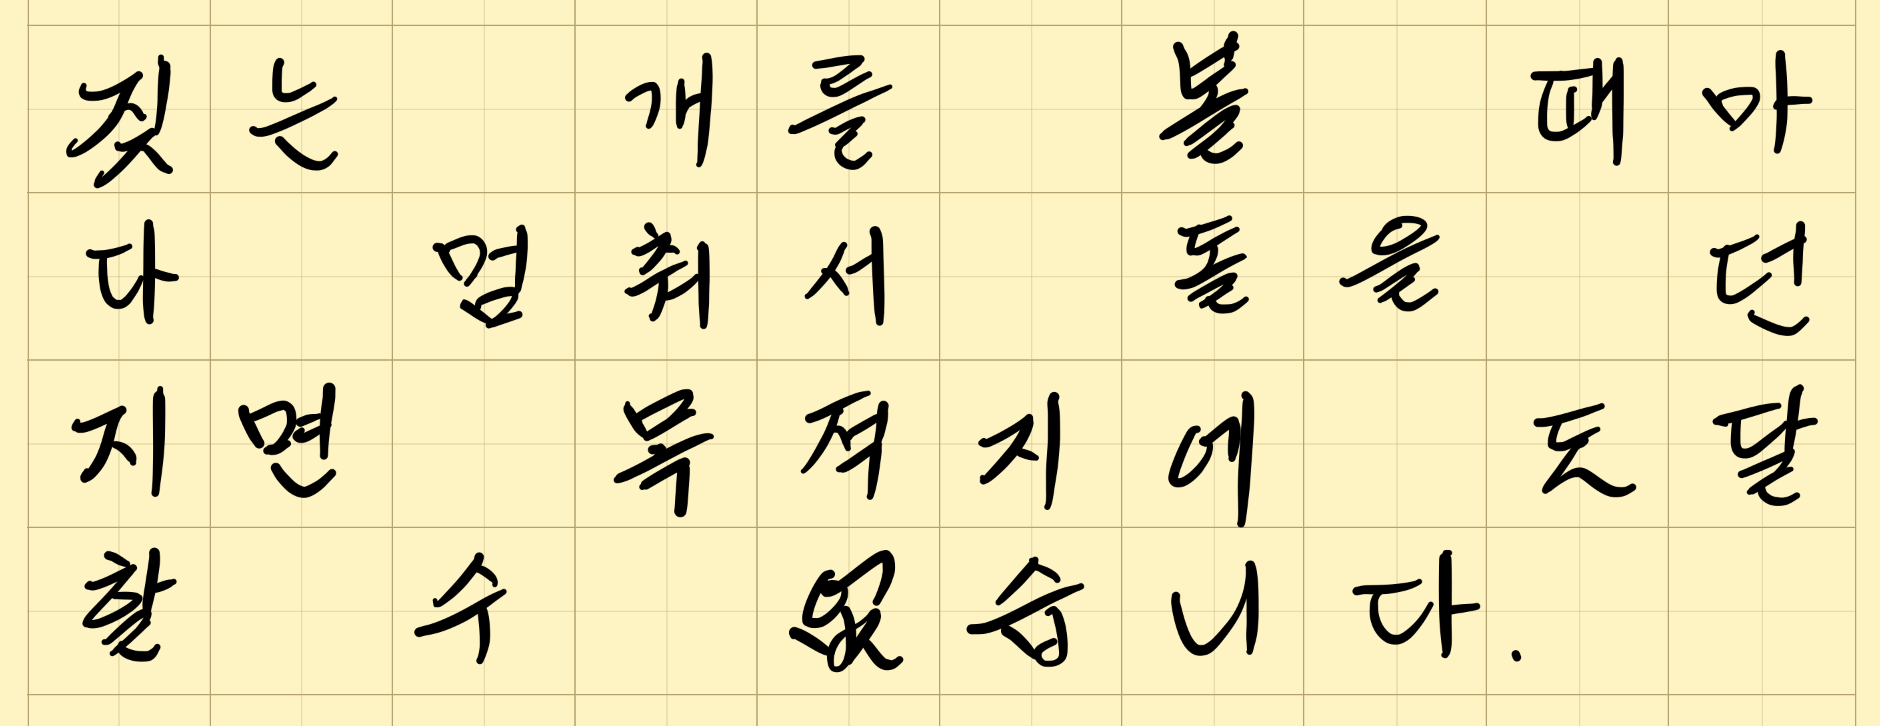 짖는 개를 볼 때마
다 멈춰서 돌을 던
지면 목적지에 도달
할 수 없습니다.